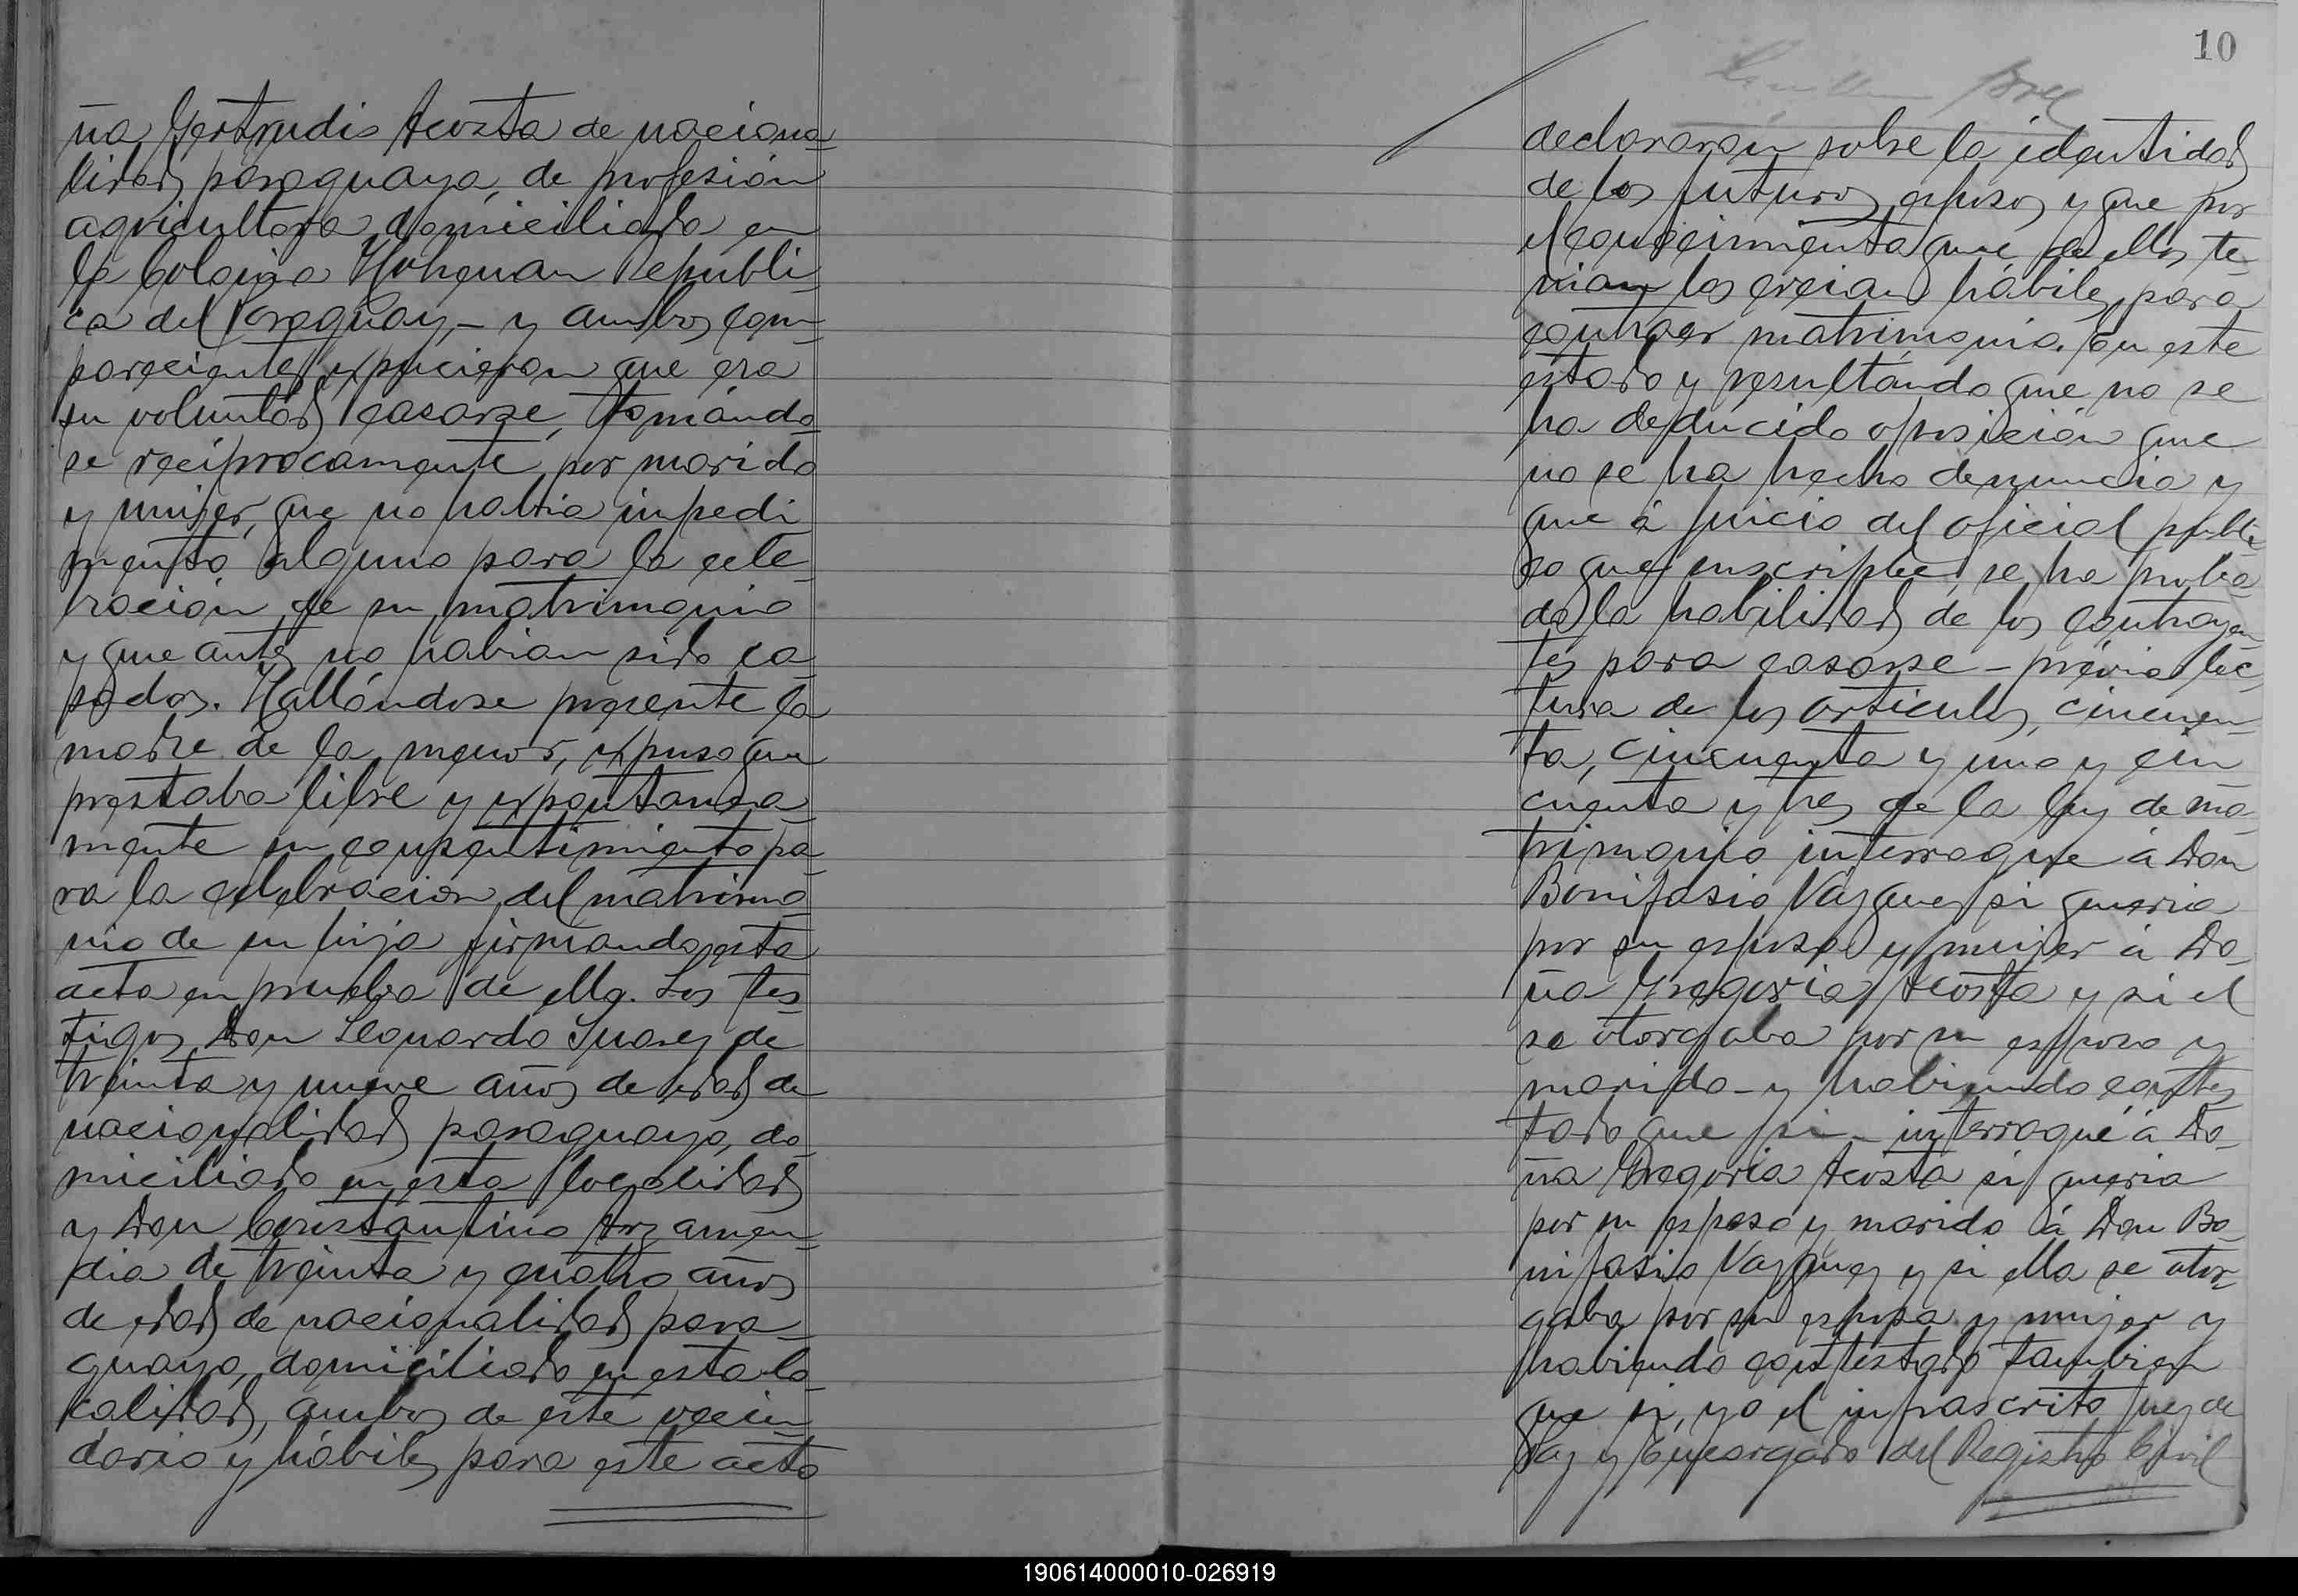 ña Gertrudis Acosta de naciona-
lidad paraguaya, de profesión
agricultora domiciliada en
la Colonia Hohenau Republi-
ca del Paraguay,- y ambos com-
parecientes expucieron que era
su voluntad casarse, tomándo-
se reciprocamente por marido
y mujer, que no habia inpedi
mento alguno para la cele-
bración de su matrimonio
y que antes no habian sido ca-
sados. Hallándose presente la
madre de la menor, expuso que
prestaba libre y expontanea-
mente su consentimiento pa-
ra la celebracion del matrimo-
nio de su hija firmando esta
acta en prueba de ello. Los tes-
tigos Don Leonardo Suarez de
treinta y nueve años de edad de
nacionalidad paraguaya, do-
miciliado en esta localidad
y Don Constantino Arzamen-
dia de treinta y cuatro años
de edad de nacionalidad para-
guaya, domiciliado en esta lo-
calidad, ambos de este vecin-
dario y hábiles para este acto
10
declararon sobre la identidad
de los futuros esposos y que por
el conocimiento que de ellos te-
nian los creian hábiles para
contraer matrimonio. En este
estado y resultando que no se
ha deducido oposición que
no se ha hecho denuncia y
que á juicio del oficial públi-
co que suscribe se ha proba-
do la habilidad de los contrayen-
tes para casarse - prévia lec-
tura de los articulos, cincuen-
ta, cincuenta y uno y cin
cuenta y tres de la ley de ma-
trimonio interrogué á Don
Bonifasio Vazquez si queria
por su esposa y mujer á Do-
ña Gregoria Acosta y si el
se otorgaba por su esposo y
marido - y habiendo contes-
tado que si - interrogué á Do-
ña Gregoria Acosta si queria
por su esposo y marido á Don Bo-
nifasio Vazquez y si ella se otor-
gaba por su esposa y mujer y
habiendo contestado tambien
que si, yo el infrascrito Juez de
Paz y Encargado del Registro Civil
190614000010-026919